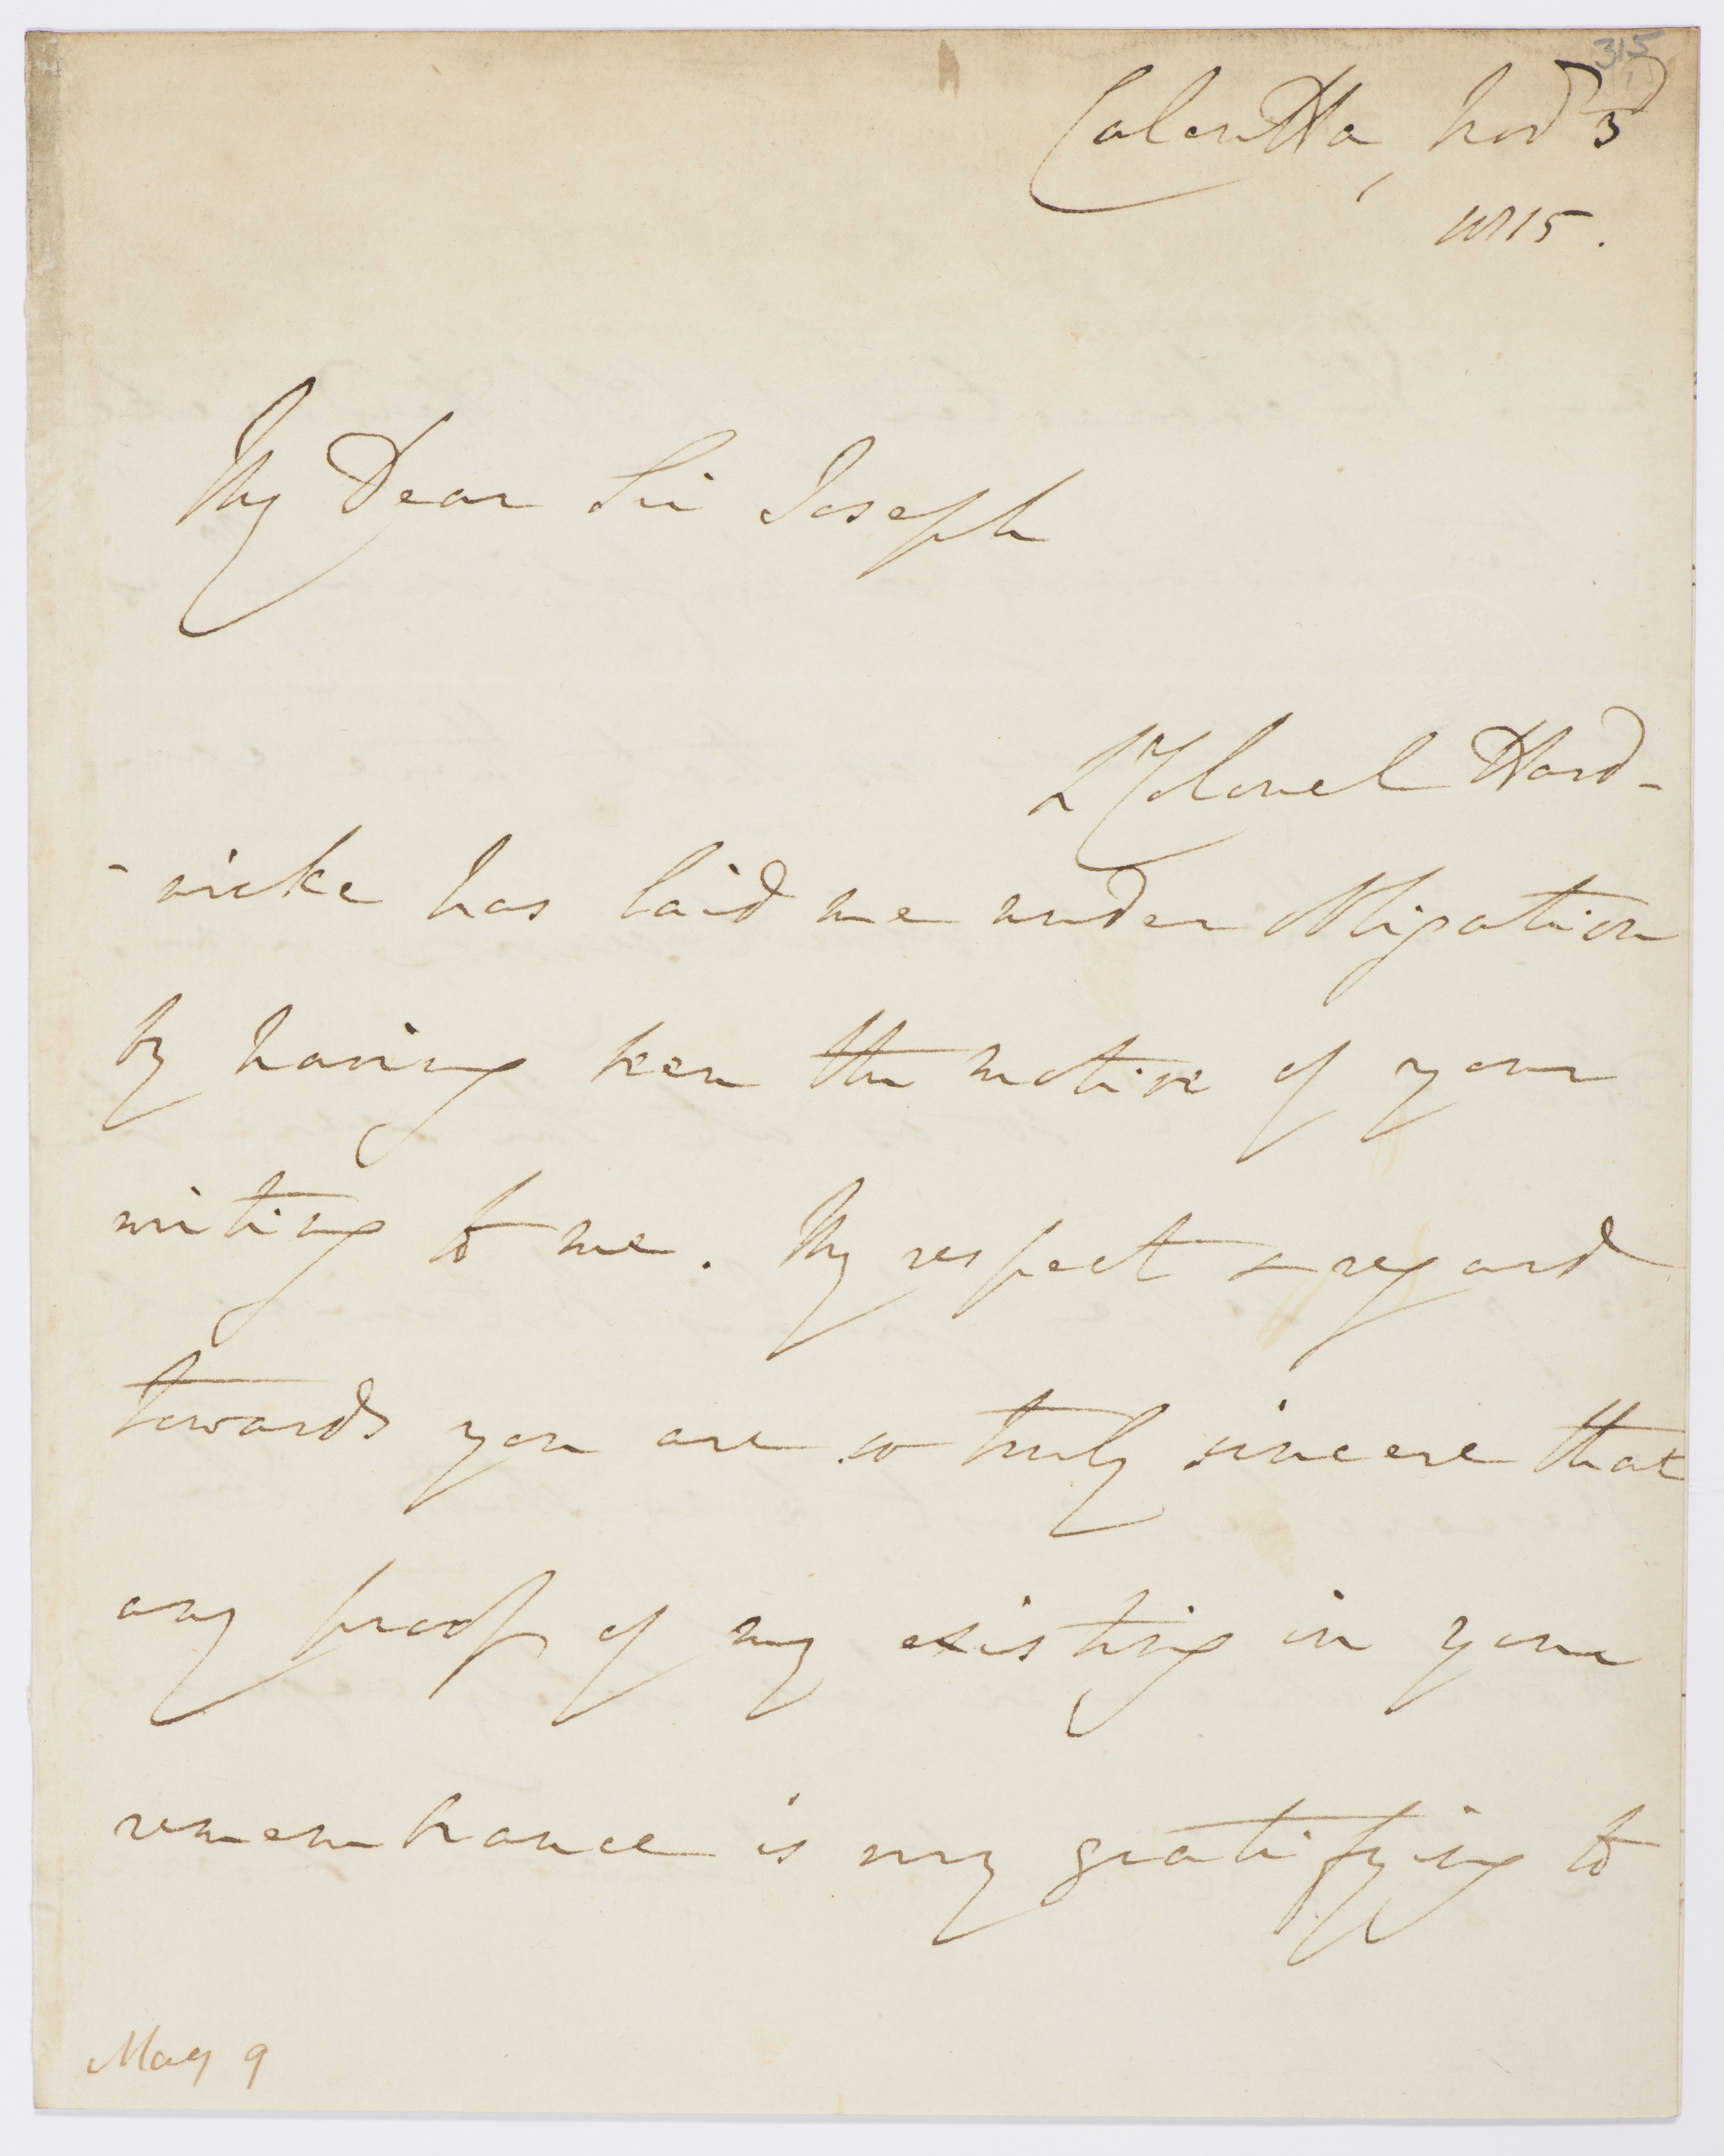 315
Calcutta, Nov.r 3d
1815.
My Dear Sir Joseph
Lt Colonel Hard-
-wicke has laid me under Obligation
by having been the motive of your
writing to me. My respect & regard
towards you are so truly sincere that
any proof of my existing in your
remembrance is very gratifying to
May 9